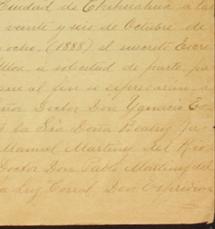 Ciudad de Chihuahua a las
veinte y seis de Octubre de
ocho. (1888) el suscrito Escri
a solicitud de parte, pa
al fin se espresaran, a
Doctor Don Ygnacio
la Sra Doña Beatriz
Manuel Martinez del Rio
Doctor Don Pablo Martinez del
a Luz Corral Don